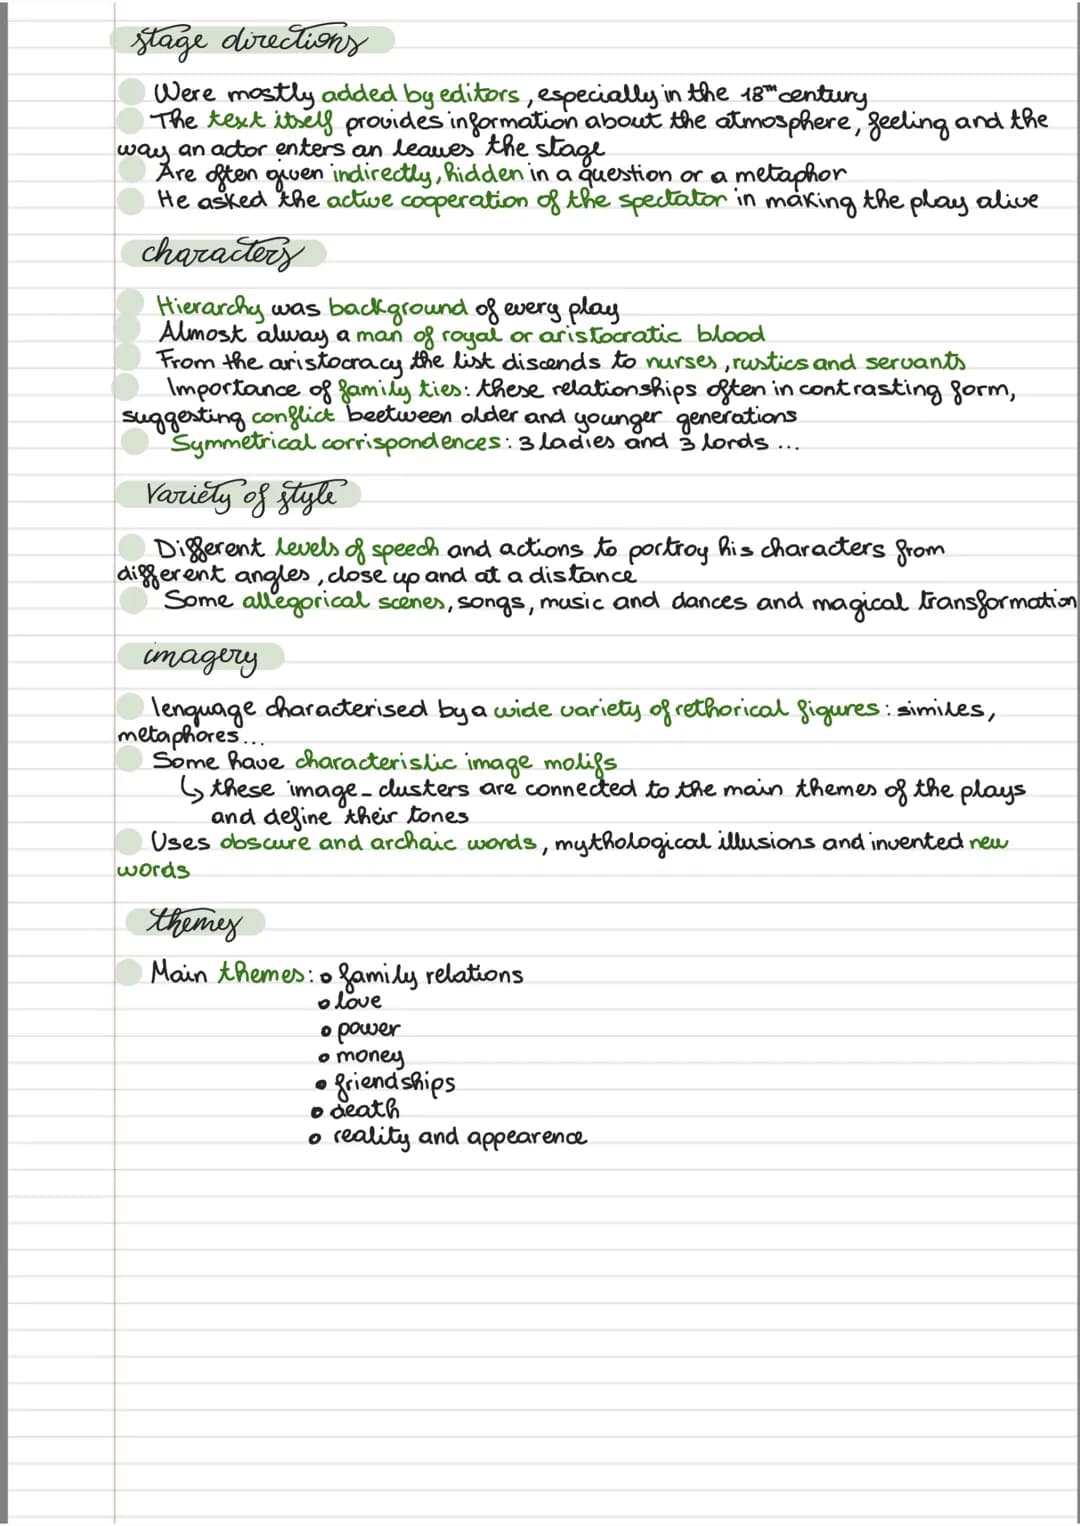 stage directions
Were mostly added by editors, especially in the 18th century
The text itself provides information about the atmosphere, feeling and the
way an actor enters an leaves the stage
Are often given indirectly, hidden in a question or a metaphor
He asked the active cooperation of the spectator in making the play alive
characters
Hierarchy was background of every play
Almost alway a man of royal or aristocratic blood
From the aristocracy the list discends to nurses, rustics and servants
Importance of family ties: these relationships often in contrasting form,
suggesting conflict beetween older and younger generations
Symmetrical corrispondences: 3 ladies and 3 lords ...
Variety of style
Different levels of speech and actions to portroy his characters from
different angles, close up and at a distance
Some allegorical scenes, songs, music and dances and magical transformation
imagery
lenguage characterised by a wide variety of rethorical figures: similes,
metaphores...
Some have characteristic image motifs
↳ these image-clusters are connected to the main themes of the plays
and define their tones
Uses obscure and archaic words, mythological illusions and invented new
words
themes
Main themes: • family relations
• love
• power
• money
• friendships
• death
• reality and appearence